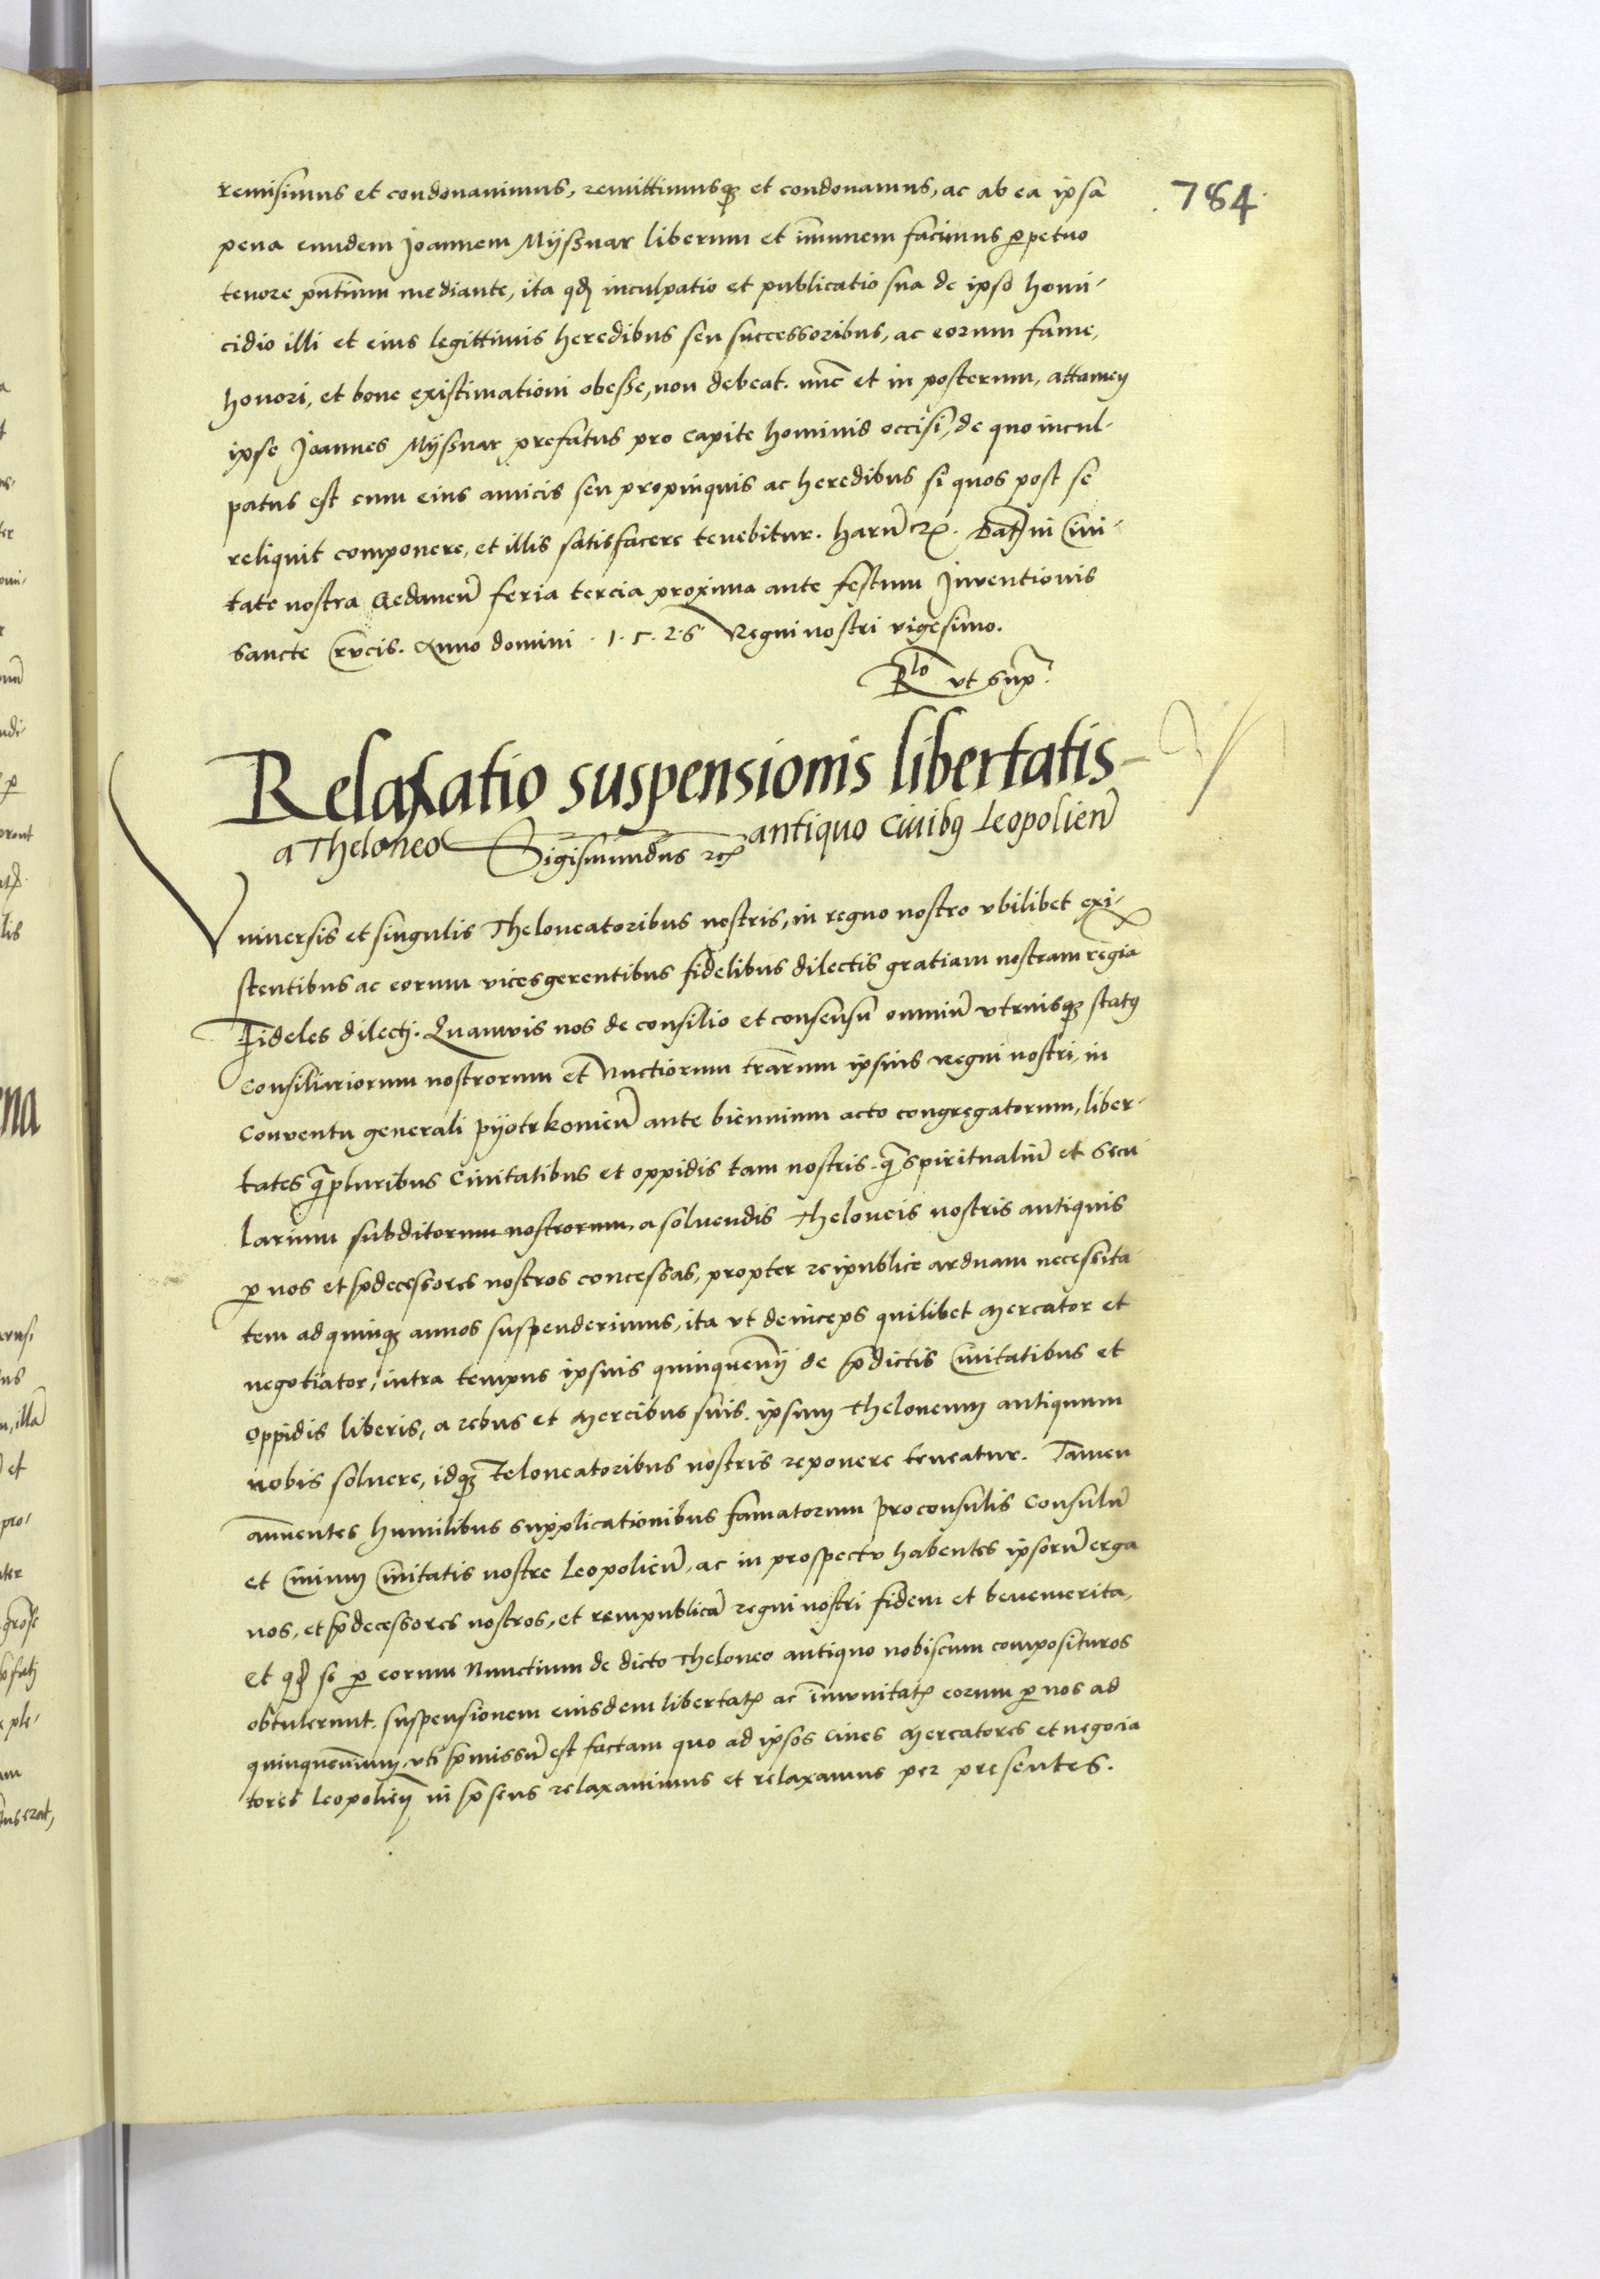 784
remisimus et condonavimus, remittimusq3 et condonamus, ac ab ea ipsa
pena eundem Joannem Myssnar liberum et im̄unem facimus ꝑpetuo
tenore pn̄tium mediante, ita qđ inculpatio et publicatio sua de ipso homi-
cidio illi et eius legittimis heredibus seu successoribus, ac eorum fame,
honori, et bone existimationi obesse, non debeat. nūc et in posterum, attamen
ipse Joannes Myssnar prefatus pro capite hominis occisi, de quo incul-
patus est cum eius amicis seu propinquis ac heredibus si quos post se
reliquit componere, et illis satisfacere tenebitur. harū ꝛc. Dat̄ in Civi-
tate nostra Gedaneñ feria tercia proxima ante festum Inventionis
sancte Crucis. Anno domini . 1. 5. 2. 6. Regni nostri vigesimo.
Rlo vt supra.
Relaxatio suspensionis libertatis
a Theloneo antiquo Civibꝰ Leopolieñ
Sigismundus ꝛc
Vniversis et singulis Theloneatoribus nostris, in regno nostro vbilibet exi-
stentibus ac eorum vicesgerentibus fidelibus dilectis gratiam nostram regia
Fideles dilecti. Quamvis nos de consilio et consensu omniū vtriusq3 statꝰ
Consiliariorum nostrorum et Nuctiorum trarum ipsius Regni nostri, in
Conventu generali Pyotrkovieñ ante biennium acto congregatorum, liber-
tates q̄pluribus Civitatibus et oppidis tam nostris. q̄ spiritualiū et secu
larium subditorum nostrorum, a solvendis theloneis nostris antiquis
ꝑ nos et p̄decessores nostros concessas, propter reipublice arduam necessita-
tem ad quinq3 annos suspenderimus, ita vt deinceps quilibet Mercator et
negotiator, intra tempus ipsius quinquennij de p̄dictis Civitatibus et
Oppidis liberis, a rebus et Mercibus suis. ipsum theloneum antiquum
nobis solvere, idq3 Teloneatoribus nostris reponere teneatur. Tamen
annuentes humilibus supplicationibus famatorum Proconsulis Consulū
et Civium Civitatis nostre Leopolieñ, ac in prospectu habentes ipsorū erga
nos, et p̄decessores nostros, et rempublicā regni nostri fidem et benemerita,
Et qđ se ꝑ eorum Nunctium de dicto Theloneo antiquo nobiscum composituros
obtulerunt, suspensionem eiusdem libertat̄ ac im̄unitat̄ eorum ꝑ nos ad
quinquennium, vti p̄missū est factam quo ad ipsos Cives Mercatores et negocia
tores Leopolieñ in p̄sens relaxavimus et relaxamus per presentes.